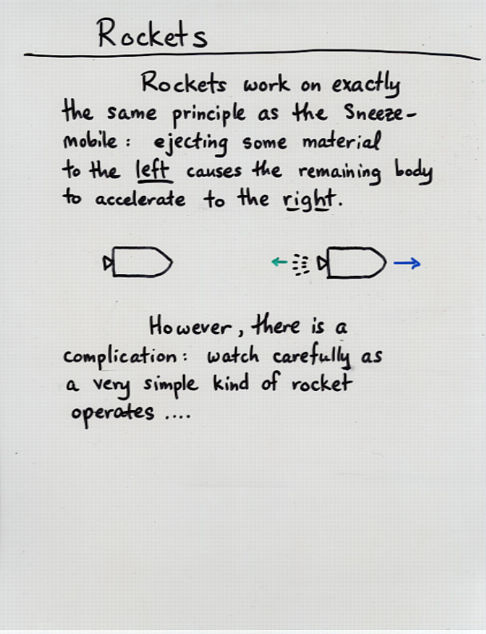 Rockets
Rockets work on exactly
the same principle as the Sneeze-
mobile: ejecting some material
to the left causes the remaining body
to accelerate to the right.
However, there is a
complication: watch carefully as
a very simple kind of rocket
operates ....